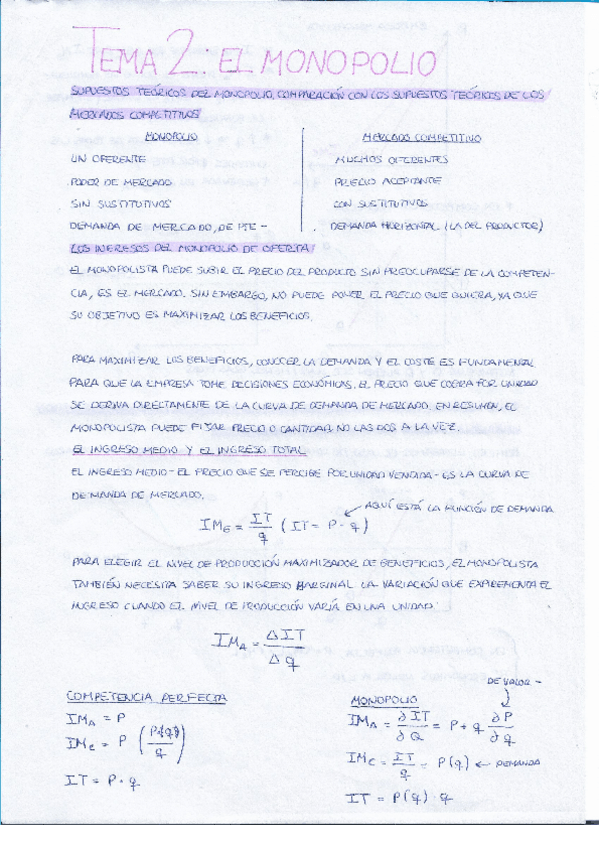 TEMA 2: EL MONOPOLIO
SUPUESTOS TEÓRICOS DEL MONOPOLIO, COMPARACIÓN CON LOS SUPUESTOS TEÓRICOS DE LOS
MERCADOS COMPETITIVOS
MONOPOLIO
MERCADO COMPETITIVO
UN OFERENTE
MUCHOS OFERENTES
PODER DE MERCADO
PRECIO ACEPTANTE
SIN SUSTITUTIVOS
CON SUSTITUTIVOS
DEMANDA DE MERCADO, DE PTE -
DEMANDA HORIZONTAL (LA DEL PRODUCTOR)
LOS INGRESOS DEL MONOPOLIO DE OFERTA
EL MONOPOLISTA PUEDE SUBIR EL PRECIO DEL PRODUCTO SIN PREOCUPARSE DE LA COMPETEN-
CIA, ES EL MERCADO. SIN EMBARGO, NO PUEDE PONER EL PRECIO QUE QUIERA, YA QUE
SU OBJETIVO ES MAXIMIZAR LOS BENEFICIOS.
PARA MAXIMIZAR LOS BENEFICIOS, CONOCER LA DEMANDA Y EL COSTE ES FUNDAMENTAL
PARA QUE LA EMPRESA TOME DECISIONES ECONÓMICAS. EL PRECIO QUE COBRA POR UNIDAD
SE DERIVA DIRECTAMENTE DE LA CURVA DE DEMANDA DE MERCADO. EN RESUMEN, EL
MONOPOLISTA PUEDE FIJAR PRECIO O CANTIDAD, NO LAS DOS A LA VEZ.
EL INGRESO MEDIO Y EL INGRESO TOTAL
EL INGRESO MEDIO - EL PRECIO QUE SE PERCIBE POR UNIDAD VENDIDA - ES LA CURVA DE
DEMANDA DE MERCADO.
AQUÍ ESTÁ LA FUNCIÓN DE DEMANDA
IMe = IT/q (IT = P · q)
PARA ELEGIR EL NIVEL DE PRODUCCIÓN MAXIMIZADOR DE BENEFICIOS, EL MONOPOLISTA
TAMBIÉN NECESITA SABER SU INGRESO MARGINAL LA VARIACIÓN QUE EXPERIMENTA EL
INGRESO CUANDO EL NIVEL DE PRODUCCIÓN VARÍA EN UNA UNIDAD:
IMa = ΔIT/Δq
COMPETENCIA PERFECTA
IMa = P
IMe = P (P(q)q/q)
IT = P · q
MONOPOLIO
DE VALOR -
IMa = ∂IT/∂Q = P + q ∂P/∂q
IMe = IT/q = P(q) ← DEMANDA
IT = P(q) · q